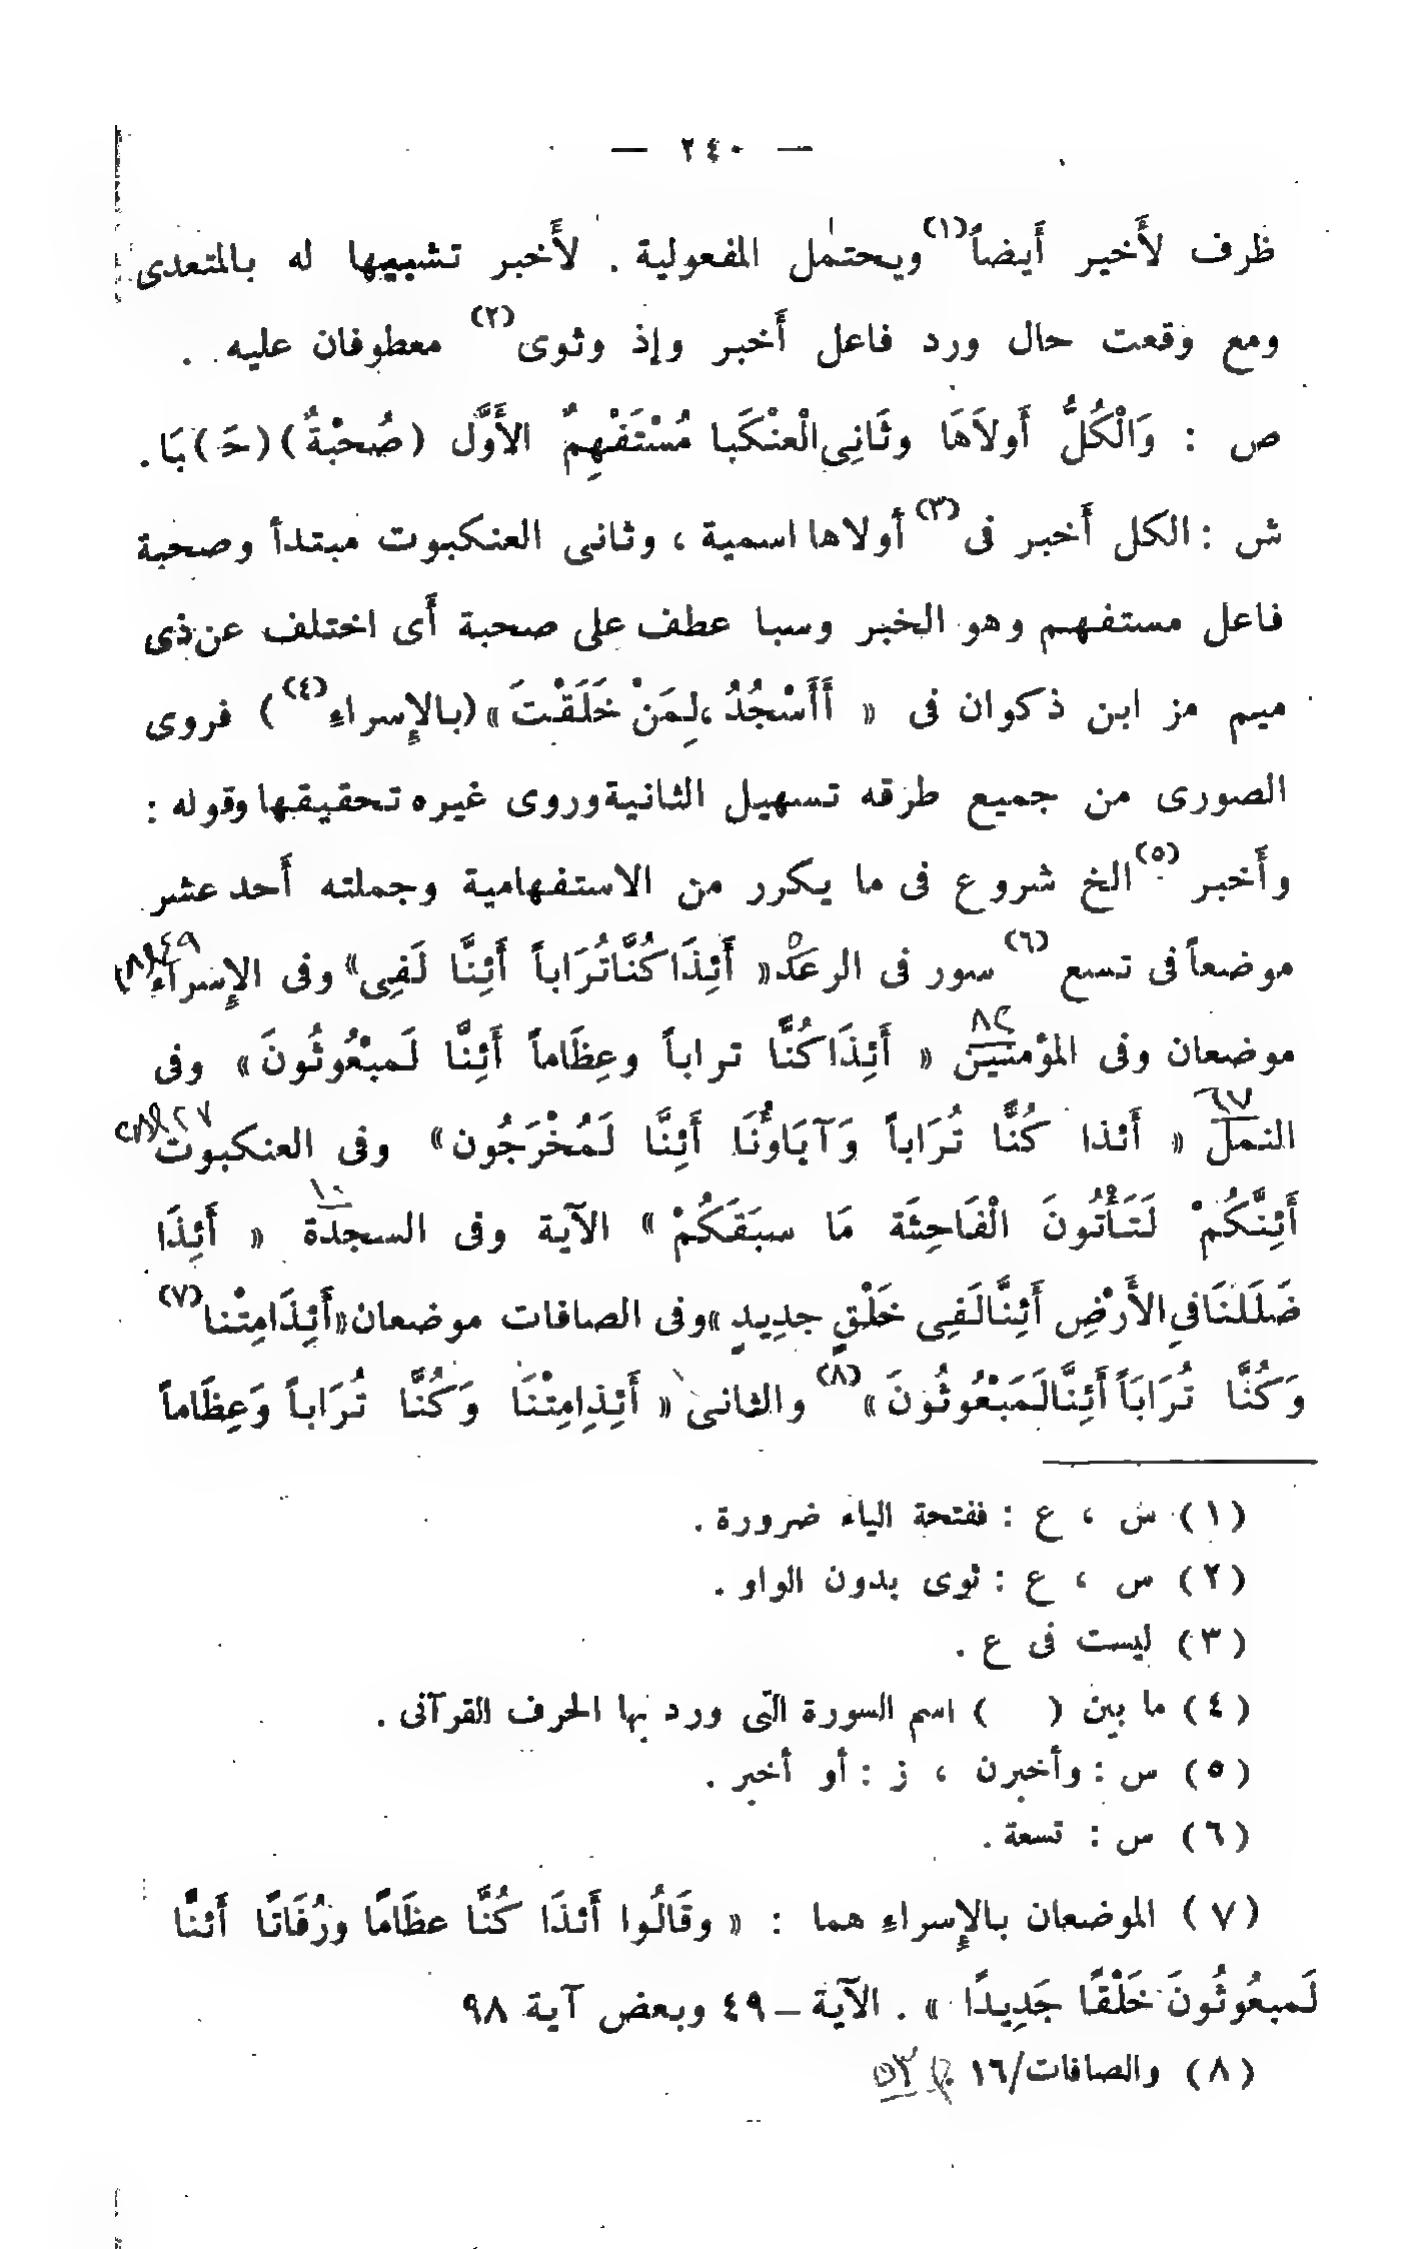 — ٢٤٠ —
ظرف لأَخير أَيضاً(١) ويحتمل المفعولية . لأَخبر تشبيها له بالمتعدى
ومع وقعت حال ورد فاعل أَخبر وإذ وثوى(٢) معطوفان عليه .
ص : وَالْكُلُّ أَولاَهَا وثَانِى الْعنْكَبا مُسْتَفْهِمٌ الأَوَّل (صُحْبْةٌ) (حَ) بَا .
ش : الكل أَخبر فى(٣) أولاها اسمية ، وثانى العنكبوت مبتدأ وصحبة
فاعل مستفهم وهو الخبر وسبا عطف على صحبة أَى اختلف عن ذى
ميم مز ابن ذكوان فى « أَأَسْجُدُ لِمَنْ خَلَقْتَ » (بالإسراءِ(٤)) فروى
الصورى من جميع طرقه تسهيل الثانية وروى غيره تحقيقها وقوله :
وأَخبر(٥) الخ شروع فى ما يكرر من الاستفهامية وجملته أَحد عشر
موضعاً فى تسع(٦) سور فى الرعد « أَئِذَا كُنَّا تُرَاباً أَئِنَّا لَفِى » وفى الإسراءِ ٤٩ ، ٩٨
موضعان وفى المؤمنين ٨٢ « أَئِذَا كُنَّا تراباً وعِظَاماً أَئِنَّا لَمبْعُوثُونَ » وفى
النمل ٦٧ « أَئذا كُنَّا تُرَاباً وَآبَاوُنَا أَئِنَّا لَمُخْرَجُون » وفى العنكبوت
أَئِنَّكُمْ لَتَأْتُونَ الْفَاحِثَة مَا سبَقَكُمْ » الآية وفى السجدة ١٠ « أَئِذَا
ضَلَلنَا فىِ الأَرْضِ أَئِنَّا لَفِى خَلْقٍ جدِيدٍ » وفى الصافات موضعان « أَئِذَا مِتْنا(٧)
وَكُنَّا تُرَابَاً أَئِنَّا لَمَبْعُوثُونَ »(٨) والثانى « أَئِذِا مِتْنَا وَكُنَّا تُرَاباً وَعِظَاماً
(١) س ، ع : ففتحة الياء ضرورة .
(٢) س ، ع : ثوى بدون الواو .
(٣) ليست فى ع .
(٤) ما بين ( ) اسم السورة التى ورد بها الحرف القرآنى .
(٥) س : وأخبرن ، ز : أو أخبر .
(٦) س : تسعة .
(٧) الموضعان بالإسراءِ هما : « وقَالُوا أَئذَا كُنَّا عظَامًا ورُفَاتًا أَئنَّا
لَمبعُوثُونَ خَلْقًا جَدِيدًا » . الآية – ٤٩ وبعض آية ٩٨
(٨) والصافات/١٦ ، ٥٣